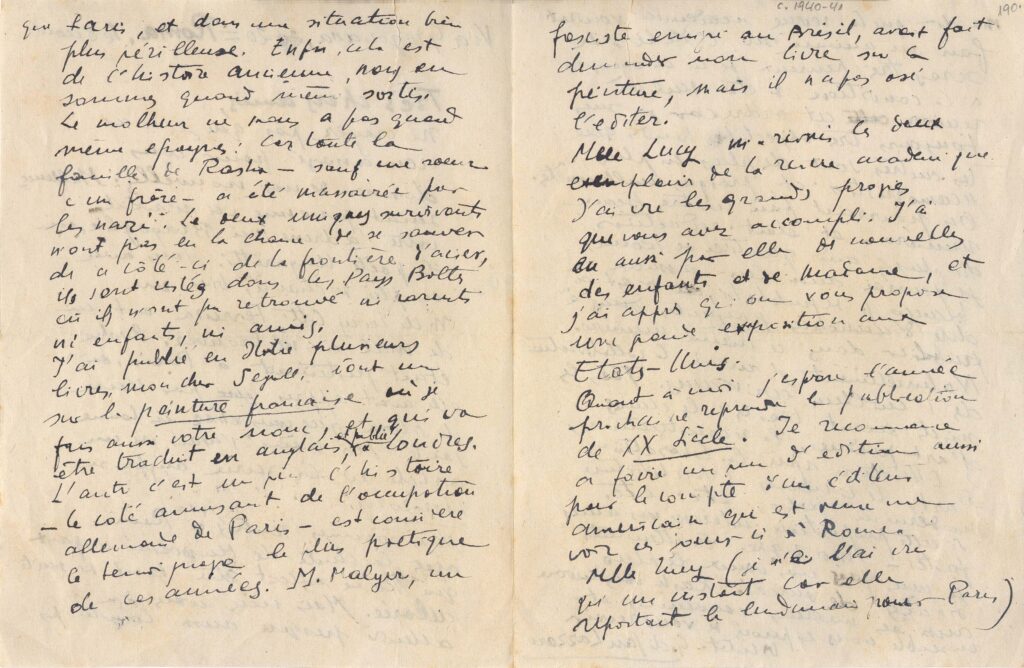 que Paris, et dans une situation bien
plus périlleuse. Enfin, cela est
de l'histoire ancienne, nous en
sommes quand même sortis.
Le malheur ne nous a pas quand
même épargnés: car toute la
famille de - sauf une sœur
e un frère - a été massacrée par
les nazi. Le deux uniques survivants
n'ont pas eu la chance de se sauver
de côté-ci de la frontière d'acier,
ils sont restés dans les Pays Baltes
où ils n'ont pu retrouvé ni parents
ni enfants, ni amis.
J'ai publié en Italie plusieurs
livres, mon cher Segall, dont un
sur la peinture française où je
fais aussi votre nom, et qui va
être traduit en anglais, publié à Londres.
L'autre c'est un peu l'histoire
- le côté amusant de l'occupation
allemande de Paris - est considéré
le temoignage le plus poétique
de ces années. M. un
c. 1940-41
190
fasciste au Brésil, avait fait
demander mon livre sur la
peinture, mais il n'a pas osé
l'editer.
Mlle Lucy m'a remis les deux
exemplaire de la revue académique
J'ai vu les grands progrès
que vous avez accompli. J'ai
eu aussi par elle de nouvelles
des enfants et de Madame, et
j'ai appris qu'on vous propose
une grande exposition aux
Etats-Unis.
Quant à moi j'espère l'année
prochaine reprendre la publication
de XX Siècle. Je recommence
a faire un peu d'édition aussi
pour le compte d'un éditeur
americain qui est venu me
voir ces jours-ci à Rome.
Mlle Lucy (je n'ai l'ai vu
qu'un instant car elle
repartait le lendemain pour Paris)